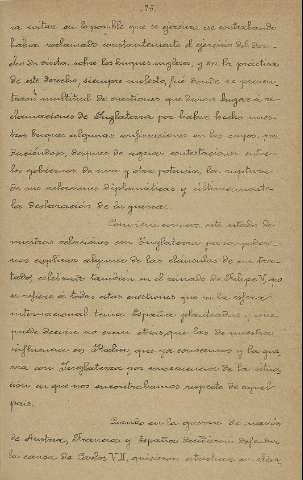 75.
ra evitar en lo posible que se ejerciera ese contrabando
había reclamado constantemente el ejercicio del dere-
cho de visita, sobre los buques ingleses, y en la práctica
de este derecho, siempre molesto, fué donde se presen-
taron multitud de cuestiones que dieron lugar a re-
clamaciones de Inglaterra por haber hecho nues-
tros buques algunas en los suyos, pro-
duciéndose, después de agrias contestaciones entre
los gobiernos de una y otra potencia, la ruptura
de sus relaciones diplomáticas y últimamente
la declaración de la guerra.
Conviene conocer este estado de
nuestras relaciones con Inglaterra para poder-
nos explicar algunas de las cláusulas de un tra-
tado, celebrado también en el reinado de Felipe V, que
se refiere a todas estas cuestiones que en la esfera
internacional tenía España planteadas y que
puede decirse no eran otras, que las de nuestra
influencia en Italia, que ya conocemos y la gue-
rra con Inglaterra por consecuencia de la situa-
ción en que nos encontrábamos respecto de aquel
país.
Cuando en la guerra de sucesión
de Austria, Francia y España decidieron defender
la causa de Carlos VII, quisieron estrechar su alian